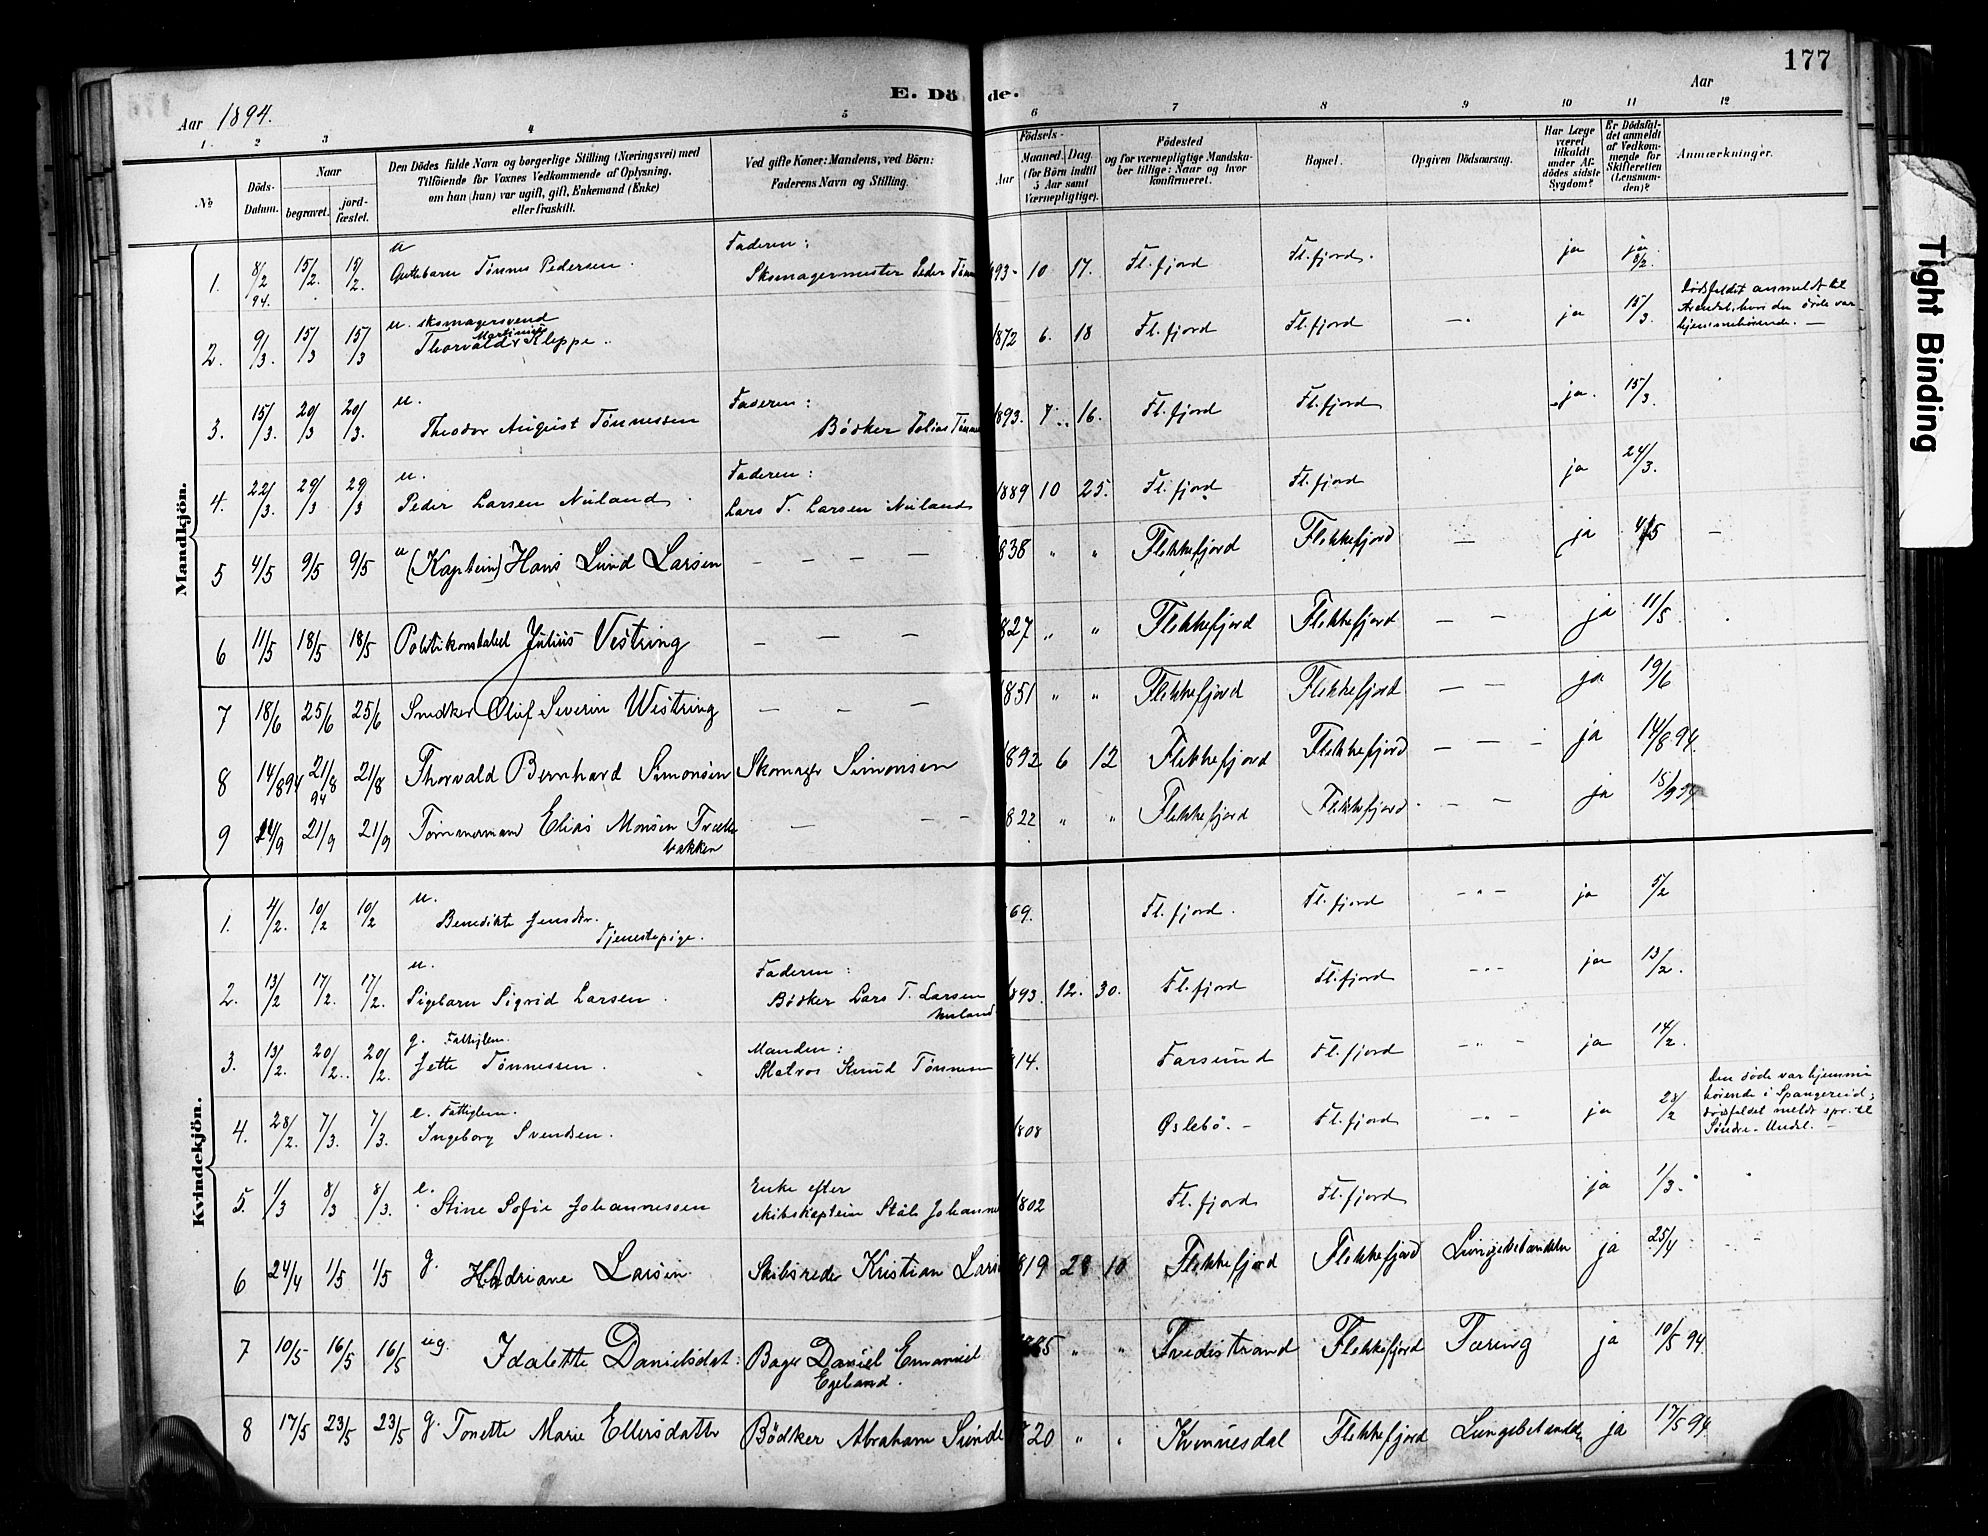 177
E. Dö de.
Aar 1894.
Aar
1. 2 3 4 5 6 7 8 9 10 11 12
No
Döds-Datum.
Naar
begravet.
jord-fæstet.
Den Dödes fulde Navn og borgerlige Stilling (Næringsvei) med
Tilföiende for Voxnes Vedkommende af Oplysning,
om han (hun) var ugift, gift, Enkemand (Enke)
eller fraskilt.
Ved gifte Koner: Mandens, ved Börn:
Faderens Navn og Stilling.
Födsels-
Aar
Maaned. Dag.
(for Börn indtil
5 Aar samt
Værnepligtige).
Födested
og for værnepligtige Mandska-
ber tillige: Naar og hvor
konfirmeret.
Bopæl.
Opgiven Dödsaarsag.
Har Læge
været
tilkaldt
under Af-
dödes sidste
Sygdom?
Er Dödsfal-
det anmeldt
af Vedkom-
mende for
Skifteretten
(Lensman-
den)?
Anmærkninger.
Mandkjön.
1. 8/2 94. 15/2. 15/2 u Guttebarn Tönnes Pedersen. Faderen: Skomagermester Peder Tönn 893- 10 17. Fl.fjord Fl.fjord. ja ja 8/2.
2. 9/3. 15/3 15/3 u. skomagersvend Thorvald Martinius Kleppe. 1872 6. 18 Fl.fjord Fl.fjord -"- ja 15/3. Dödsfaldet anmeldt til
Arendal, hvor den döde var
hjemmehörende. -
3. 15/3. 20/3 20/3. u. Theodor August Tönnessen Faderen: Bödker Tobias Tönne 1893. 7. 16. Fl.fjord Fl.fjord ja. 15/3.
4. 22/3. 29/3 29/3 u. Peder Larsen Nuland. Faderen: Lars T. Larsen Nuland 1889 10 25. Fl.fjord Fl.fjord ja 24/3.
5 4/5 9/5 9/5 u (Kaptein) Hans Lund Larsen - - - 838 " " Flekkefjord Flekkefjord - ja 4/5 -
6 11/5 18/5 18/5 Politikonstabel Julius Vestring - - - 827 " " Flekkefjord Flekkefjord - - ja 11/5
7 18/6 25/6 25/6 Snedker Oluf Severin Westring - - - 1851 " " Flekkefjord Flekkefjord - - ja 19/6
8 14/8 94 21/8 94 21/8 Thorvald Bernhard Simonsen Skomager Simonsen 1892 6 12 Flekkefjord Flekkefjord - - - ja 14/8 94.
9 14/9 21/9 21/9 Tömmermand Elias Monsen Trælle
bakken - - - 822 " " Flekkefjord Flekkefjord - - ja 15/9 94
Kvindekjön.
1. 4/2. 10/2 10/2 u. Benedikte Jensdtr.
Tjenestepige. 69. Fl.fjord. Fl.fjord -"- ja 5/2
2. 13/2 17/2. 17/2. u. Pigebarn Sigrid Larsen. Faderen: Bödker Lars T. Larsen
Nuland. 1893. 12. 30. Fl.fjord Fl.fjord -"- ja 13/2.
3. 13/2. 20/2. 20/2. g. Fattiglem. Jette Tönnessen. Manden: Matros Knud Tönnesen 814. Farsund Fl.fjord -"- ja 14/2.
4. 28/2. 7/3. 7/3. e. Fattiglem. Ingeborg Svendsen. 1808 Öslebö. - Fl.fjord -"- ja 28/2 Den döde var hjemme
hörende i Spangereid;
dödsfaldet meldt spr. til
Söndre-Undal. -
5. 1/3 8/3 8/3. e. Stine Sofie Johannessen Enke efter
skibskaptein Ståle Johanne 1802 Fl.fjord Fl.fjord ja 1/3.
6 24/4 1/5 1/5 g. Hadriane Larsen Skibsreder Kristian Larse 819 28 10 Flekkefjord Flekkefjord Lungebetændelse ja 25/4
7 10/5 16/5 16/5 ug. Idalette Danielsdat: Bager Daniel Emanuel
Egeland. 1885 " " Tvedestrand Flekkefjord Tæring ja 10/5 94
8 17/5 23/5 23/5 g. Tonette Marie Ellersdatter Bödker Abraham Sunde 1820 " " Kvinnesdal Flekkefjord Lungebetændel ja 17/5 94
Tight Binding